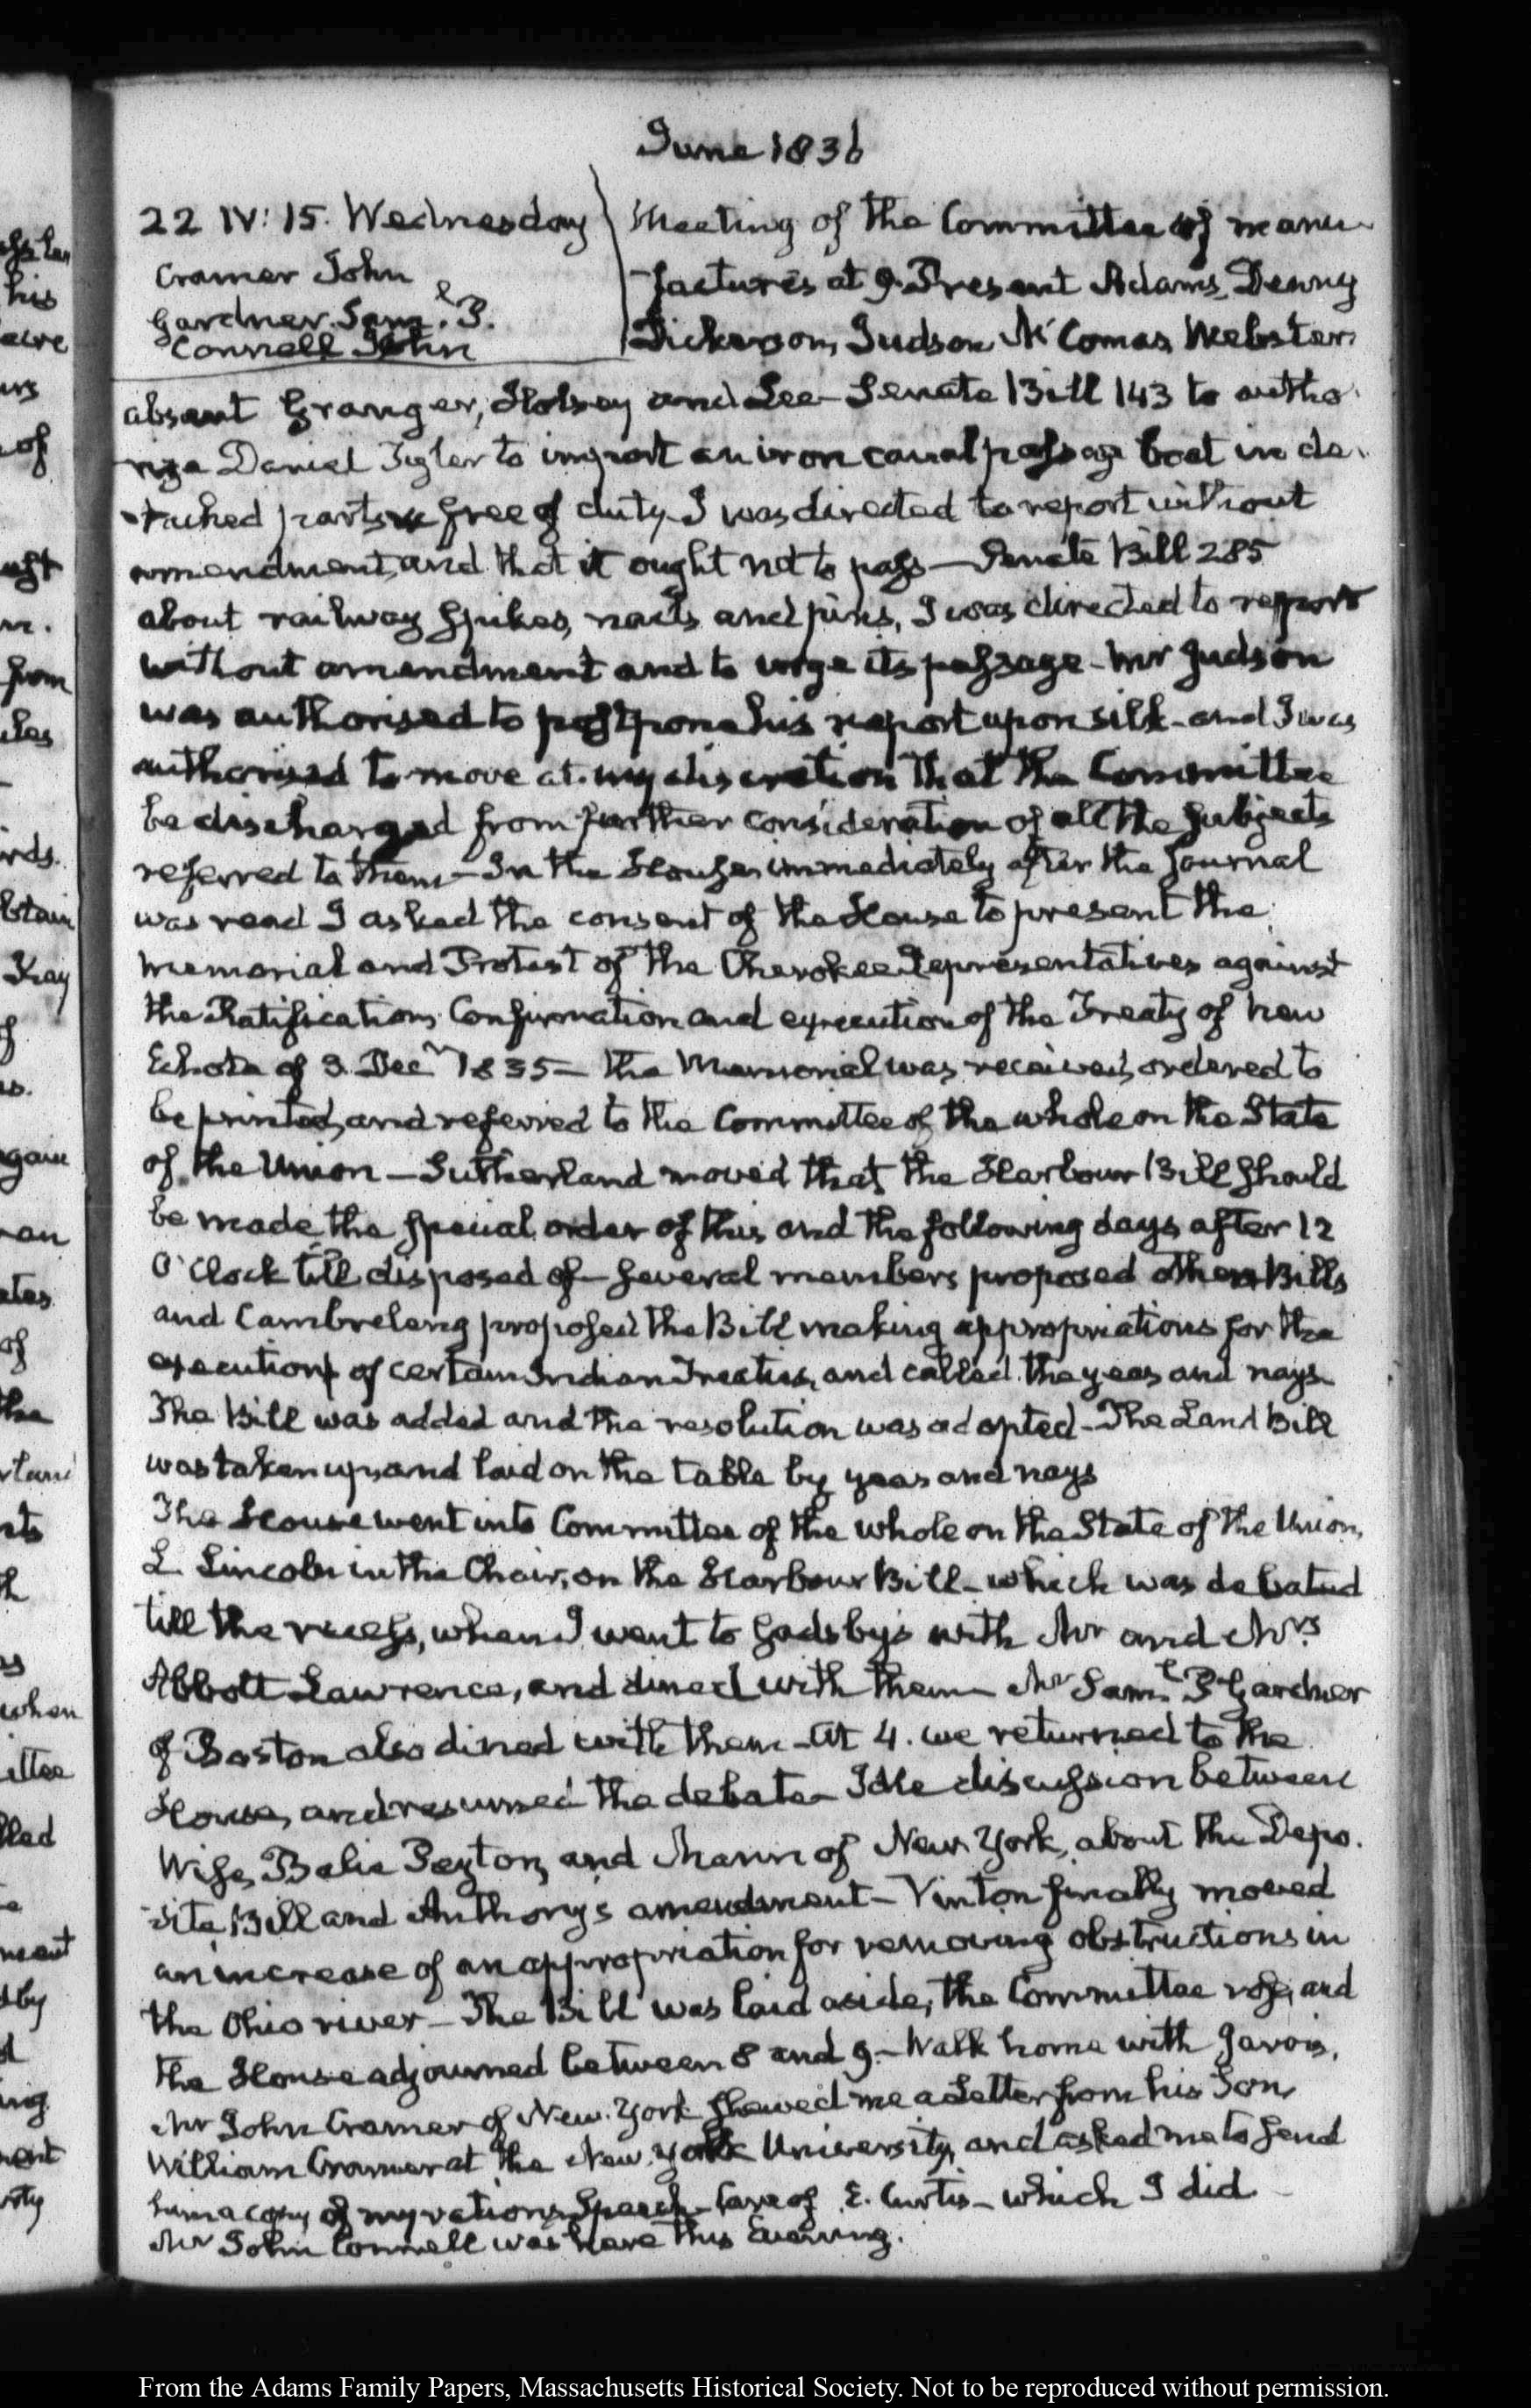 June 1836
22 IV: 15. Wednesday
Cramer John
Gardner. Sam.l P.
Connell John
Meeting of the Committee of manu-
-factures at 9. Present Adams, Denny
Dickerson, Judson McComas, Webster.
absent Granger, Halsey and Lee - Senate Bill 143 to autho-
-rize Daniel to import an iron canal passage boat in de-
-tached parts free of duty I was directed to report without
amendment, and that it ought not to pass — Senate Bill 285
about railway spikes, nails and pins, I was directed to report
without amendment and to urge its passage - Mr Judson
was authorised to postpone his report upon silk - and I was
authorised to move at my discretion that the Committee
be discharged from further consideration of all the subjects
referred to them - In the House, immediately after the Journal
was read I asked the consent of the House to present the
Memorial and Protest of the Cherokee Representatives against
the Ratification, Confirmation and execution of the Treaty of New
Echota of Decr 1835 - the Memorial was received, ordered to
be printed, and referred to the Committee of the whole on the State
of the Union - Sutherland moved that the Harbour Bill should
be made the special order of this and the following days after 12
O'Clock till disposed of - several members proposed other Bills
and Cambreleng proposed the Bill making appropriations for the
execution of certain Indian Treaties, and called the yeas and nays.
The Bill was added and the resolution was adopted - The Land Bill
was taken up, and laid on the table by yeas and nays
The House went into Committee of the whole on the State of the Union,
L. Lincoln in the Chair, on the Harbour Bill - which was debated
till the recess, when I went to Gadsby's with Mr and Mrs
Abbott Lawrence, and dined with them - Mr Saml. P Gardner
of Boston also dined with them - At 4. we returned to the
House, and resumed the debate - Idle discussion between
Wise, Balie Peyton, and Mann of New York, about the Depo-
-site Bill and Anthony's amendment - Vinton finally moved
an increase of an appropriation for removing obstructions in
the Ohio river - The Bill was laid aside, the Committee rose, and
the House adjourned between 8 and 9. - Walk home with Jarvis,
Mr John Cramer of New-York shewed me a Letter from his Son,
William Cramer at the New-York University, and asked me to send
him a copy of my rations Speech - Care of E. Curtis - which I did -
Mr John Connell was here this Evening.
From the Adams Family Papers, Massachusetts Historical Society. Not to be reproduced without permission.